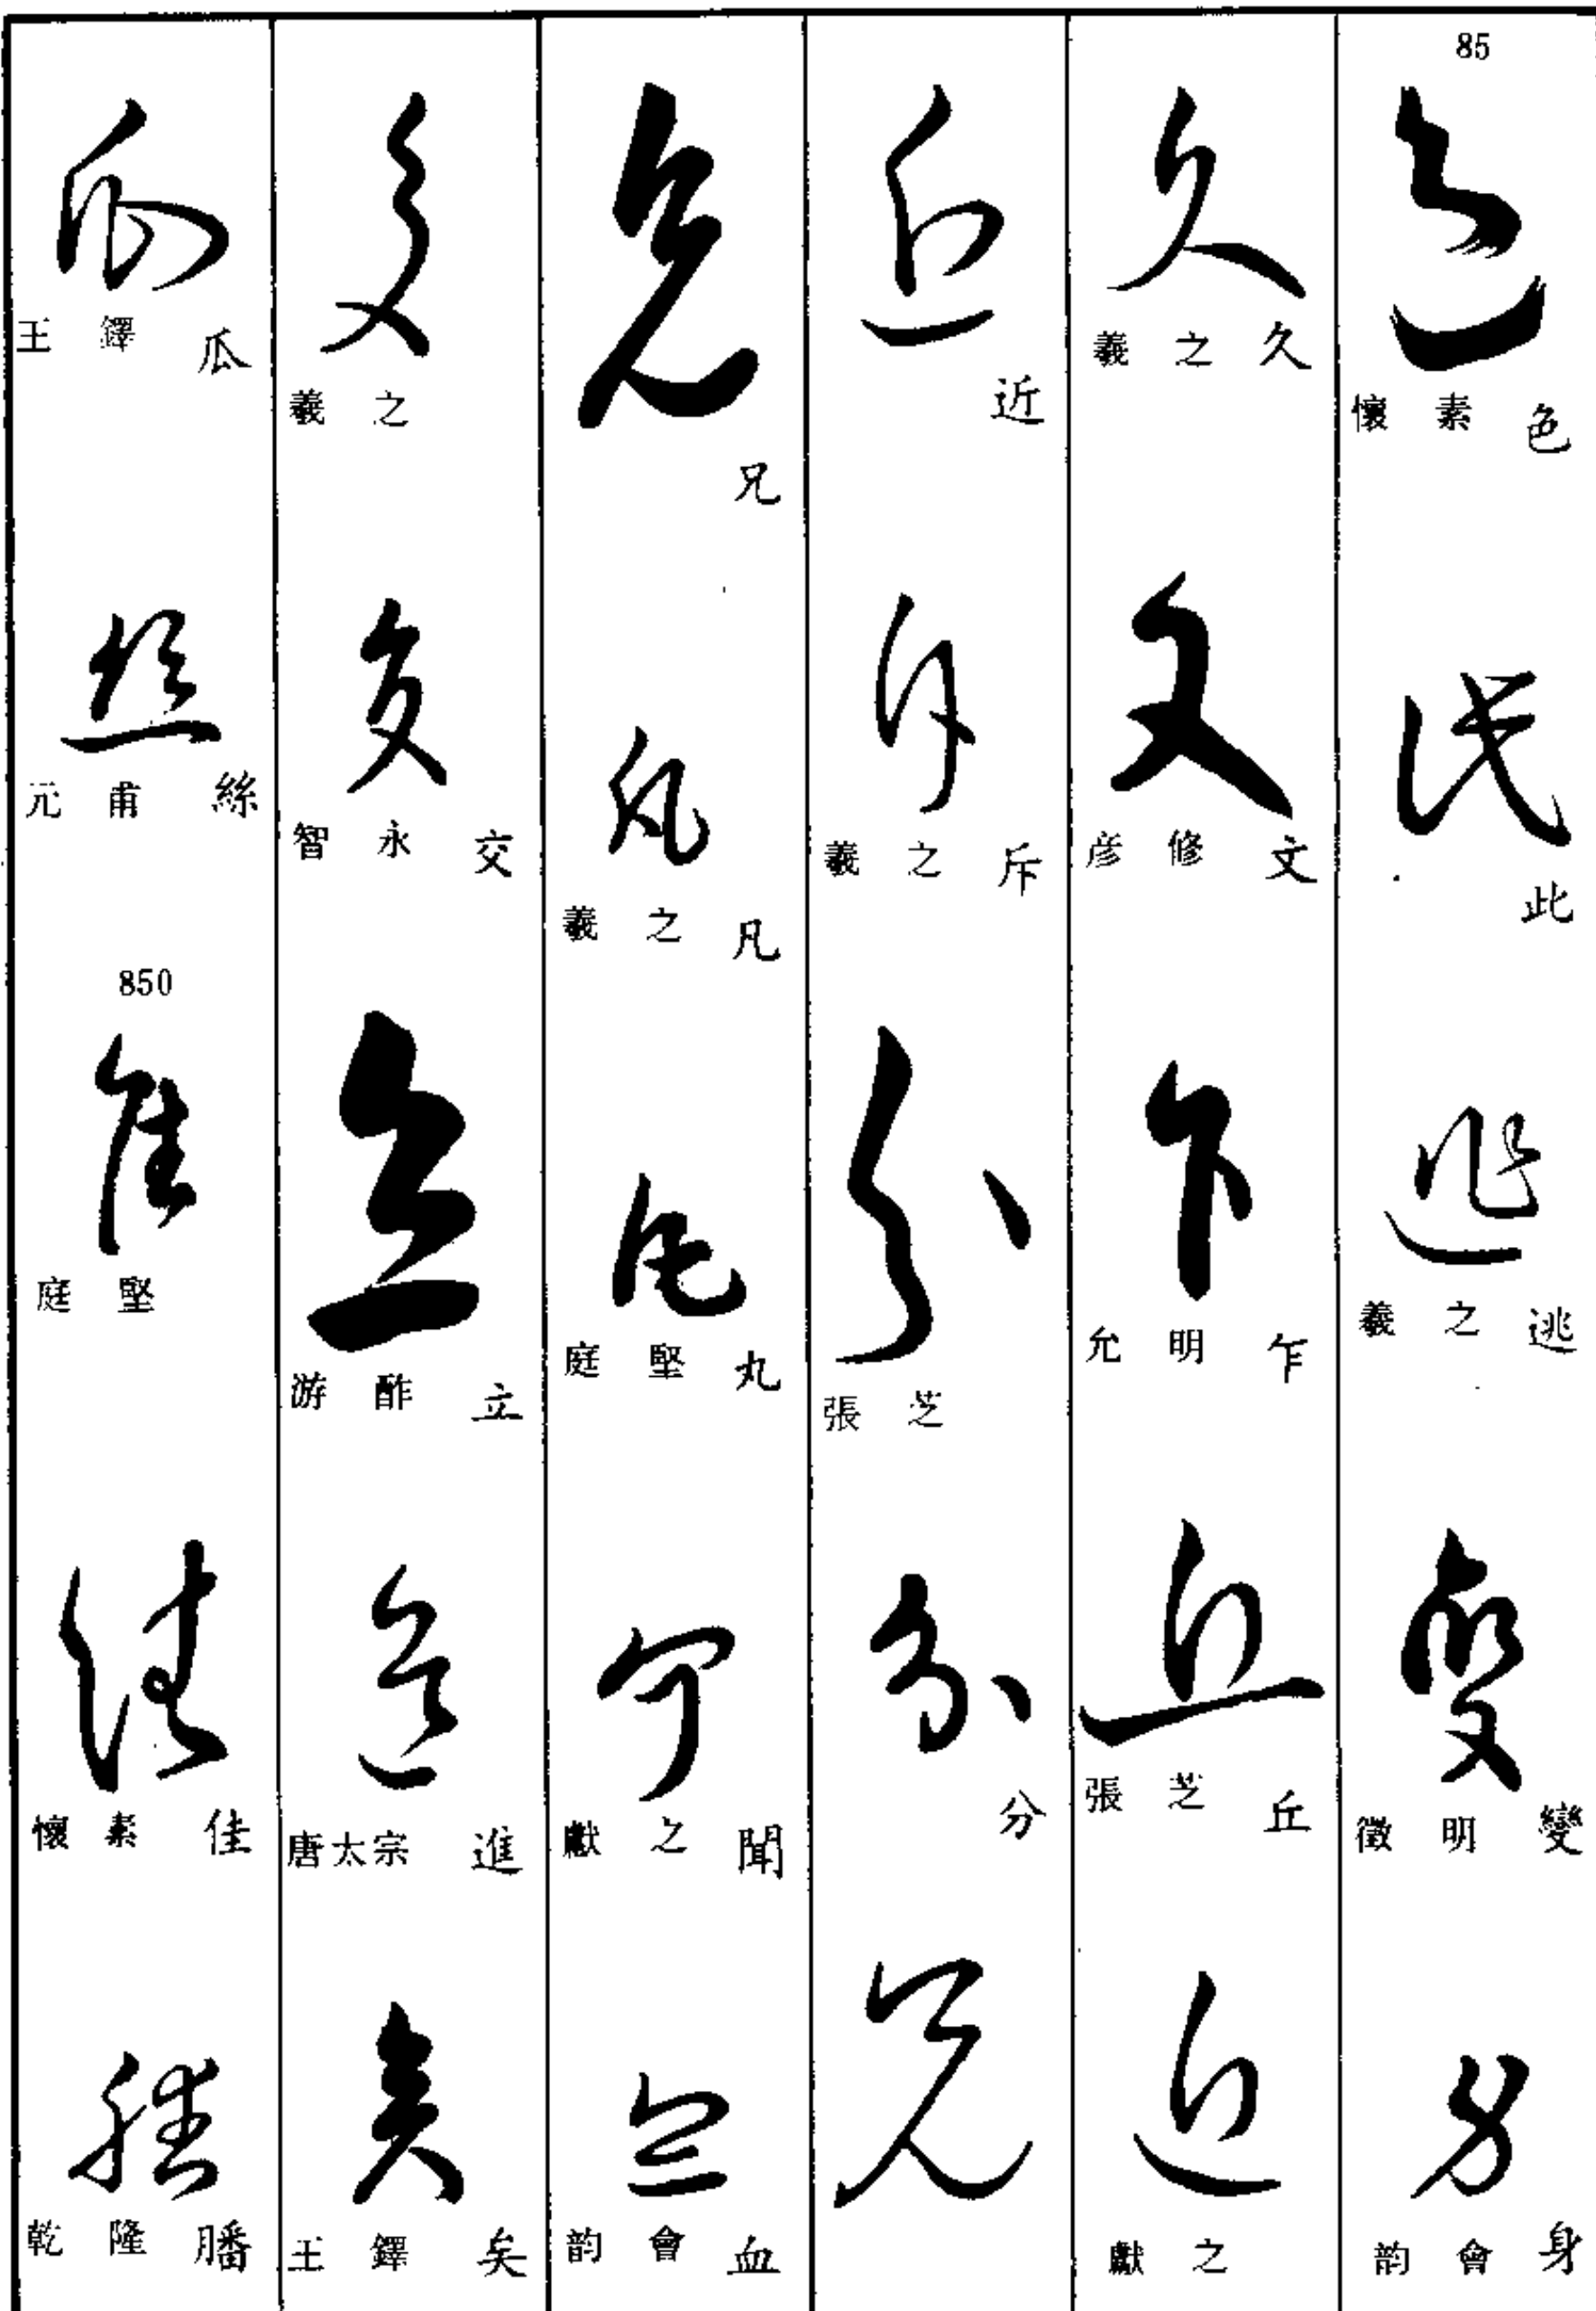 85
懷素 色
此
羲之 逃
徵明 變
韵會 身
羲之 久
彦修 文
允明 乍
張芝 丘
獻之
近
羲之 斥
張芝
分
兄
羲之 凡
庭堅 丸
獻之 聞
韵會 血
羲之
智永 交
游酢 立
唐太宗 進
王鐸 矣
王鐸 瓜
元甫 絲
850
庭堅
懷素 佳
乾隆 膰